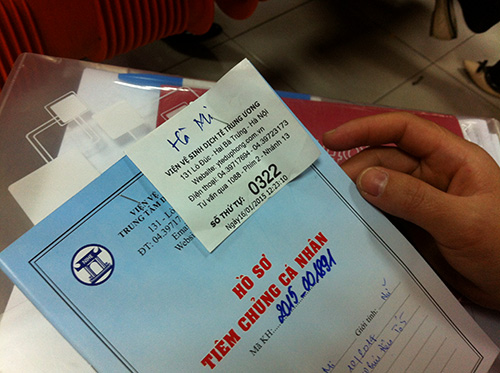 Hà Mi
VIỆN VỆ SINH DỊCH TỄ TRUNG ƯƠNG
131 Lò Đúc - Hai Bà Trưng - Hà Nội
Website: yteduphong.com.vn
Điện thoại: 04.39717694 - 04.39723173
Tư vấn qua 1088 - Phím 2 - Nhánh 13
SỐ THỨ TỰ: 0322
Ngày16/01/2015 12:23:10
VIỆN VỆ
TRUNG TÂM D
131 - Lò
ĐT: 04.3971
Email
Website
HỒ SƠ
TIÊM CHỦNG CÁ NHÂN
Mã KH: 2015_001891
Mi
Giới tính: Nữ